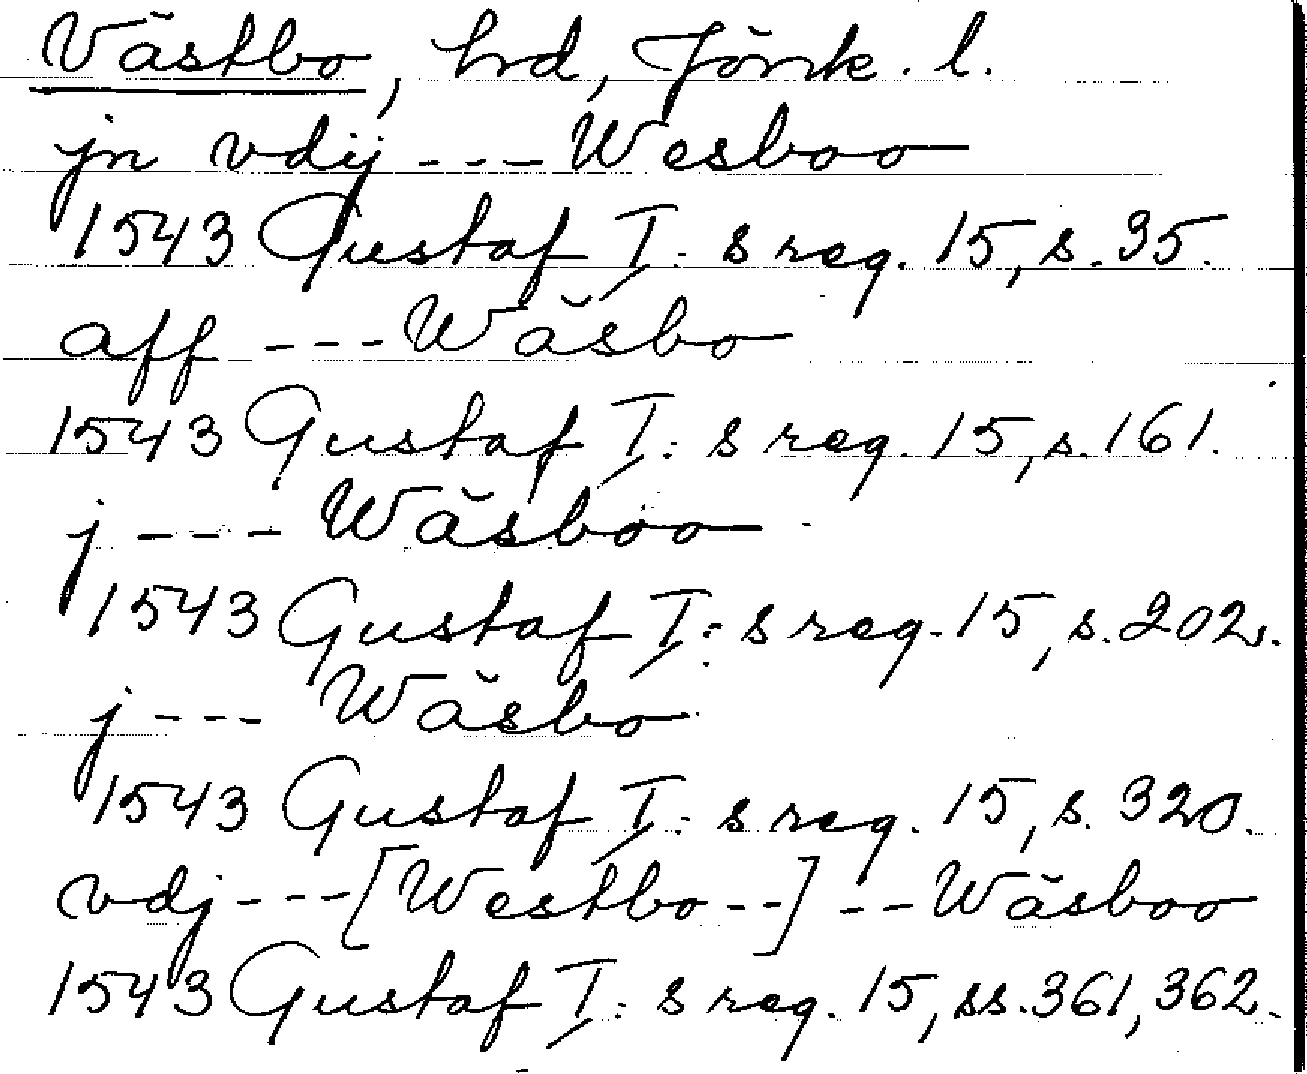 Västbo, hrd, Jönk. l.
jn vdij --- Wesboo
1543 Gustaf I:s reg. 15, s. 35.
aff --- Wäsbo
1543 Gustaf I:s reg. 15, s. 161.
j --- Wäsboo
1543 Gustaf I:s reg. 15, s. 202.
j --- Wäsbo
1543 Gustaf I:s reg. 15, s. 320.
vdj --- [Westbo --] -- Wäsboo
1543 Gustaf I:s reg. 15, ss. 361, 362.